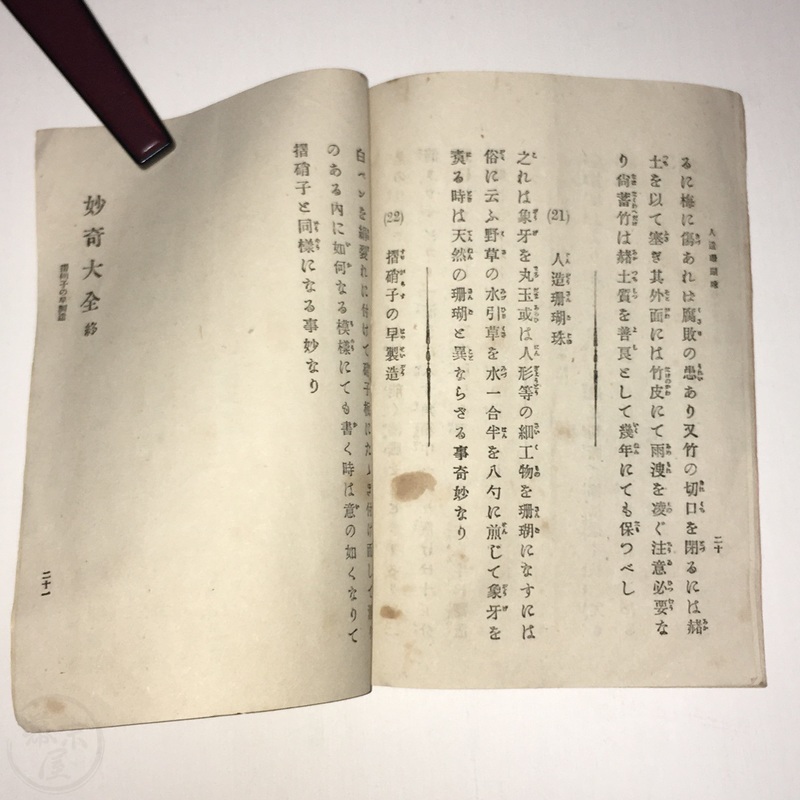 人造珊瑚珠
るに梅に傷あれは腐敗の患あり又竹の切口を閉るには赭
土を以て塞ぎ其外面には竹皮にて雨洩を凌ぐ注意必要な
り尙蓄竹は赭土質を善良として幾年にても保つべし
(21) 人造珊瑚珠
之れは象牙を丸玉或は人形等の細工物を珊瑚になすには
俗に云ふ野草の水引草を水一合半を八勺に煎じて象牙を
煑る時は天然の珊瑚と異ならざる事奇妙なり
(22) 摺硝子の早製造
二十
白ペンを綿裂れに付けて硝子板にたゝき付け而して
のある内に如何なる模樣にても書く時は意の如くなりて
摺硝子と同樣になる事妙なり
妙奇大全 終
摺硝子の早製造
二十一